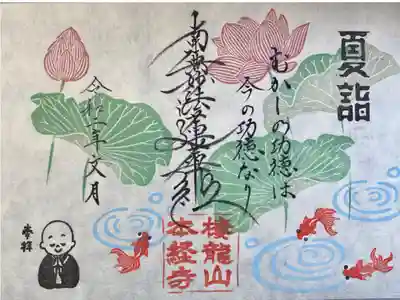 夏詣
むかしの功徳は
今の功徳なり
南無妙法蓮華経
令和二年文月
奉拝
龍山
本経寺